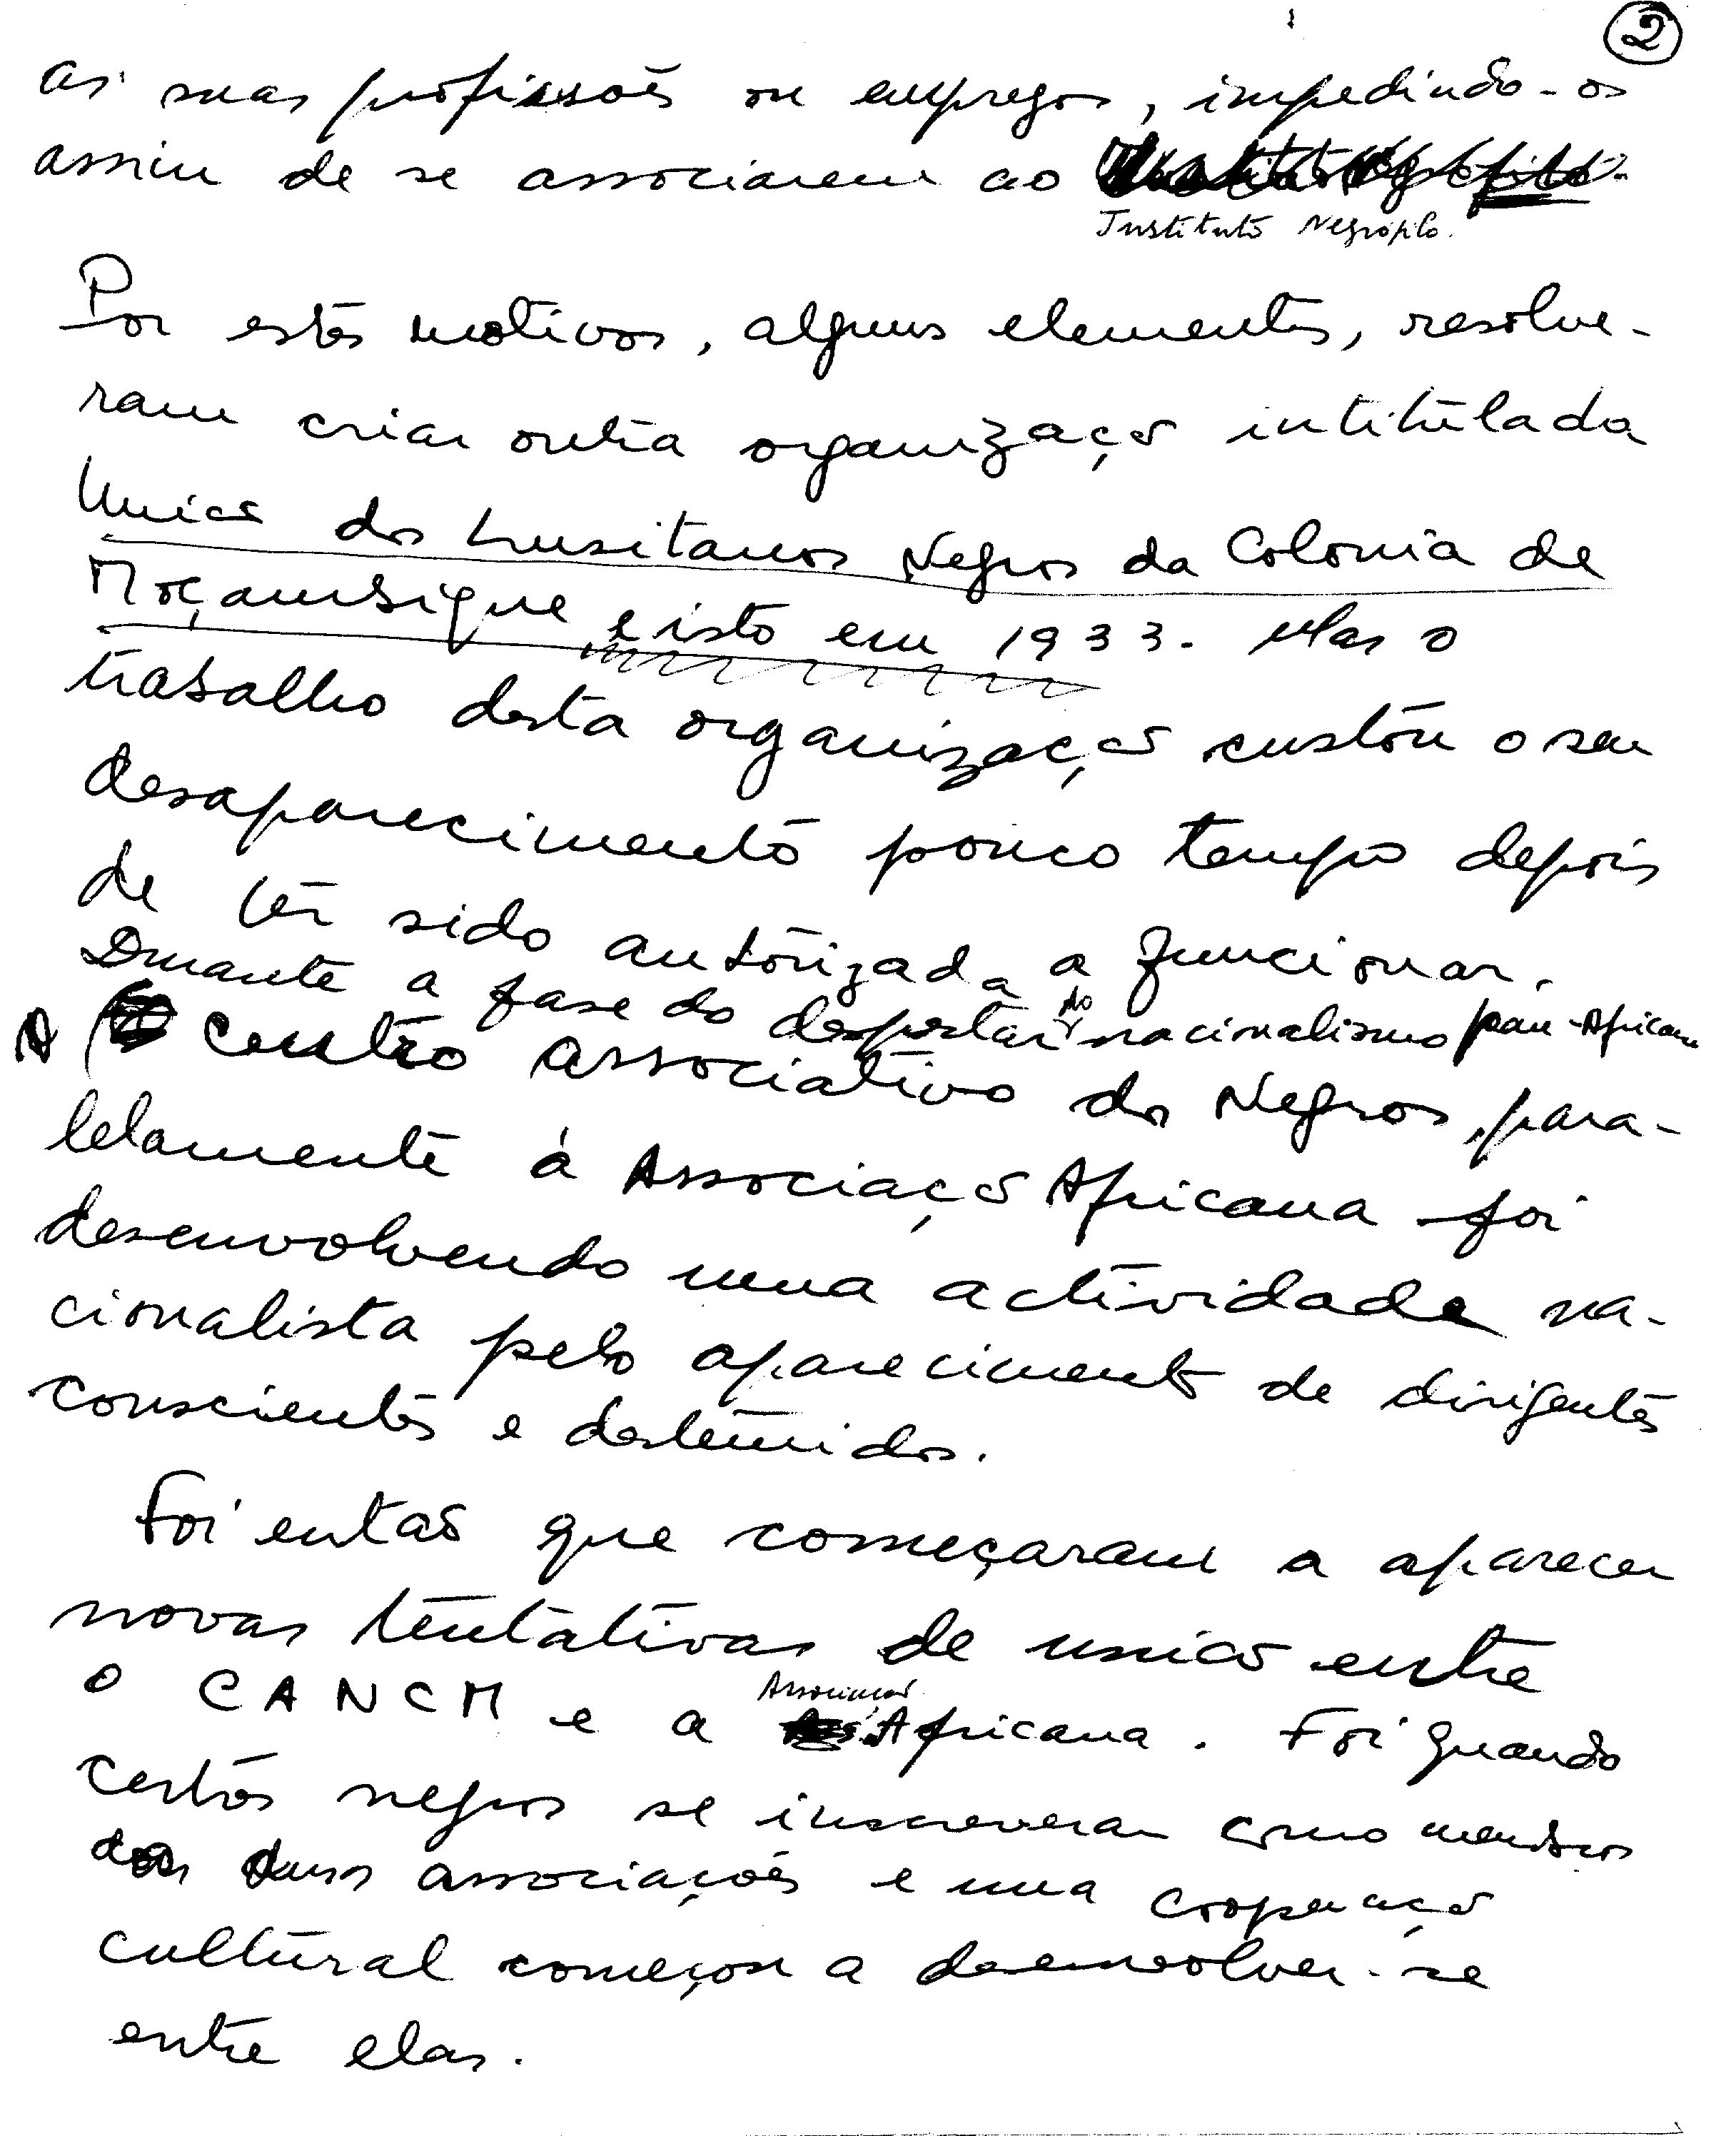 2
as suas profissões ou empregos, impedindo-os
assim de se associarem ao
Instituto Negrófilo.
Por estes motivos, alguns elementos, resolve-
ram criar outra organização intitulada
União dos Lusitanos Negros da Colonia de
Moçambique e isto em 1933. Mas o
trabalho desta organização custou o seu
desaparecimento pouco tempo depois
de ter sido autorizada a funcionar.
Durante a fase do despertar do nacionalismo pan-Africano
A Centro Associativo dos Negros, para-
lelamente à Associação Africana foi
desenvolvendo uma actividade na-
cionalista pelo aparecimento de dirigentes
conscientes e destemidos.
Foi então que começaram a aparecer
novas tentativas de união entre
o CANCM e a Associação Africana. Foi quando
certos negros se inscreveram como membros
das duas associações e uma cooperação
cultural começou a desenvolver-se
entre elas.